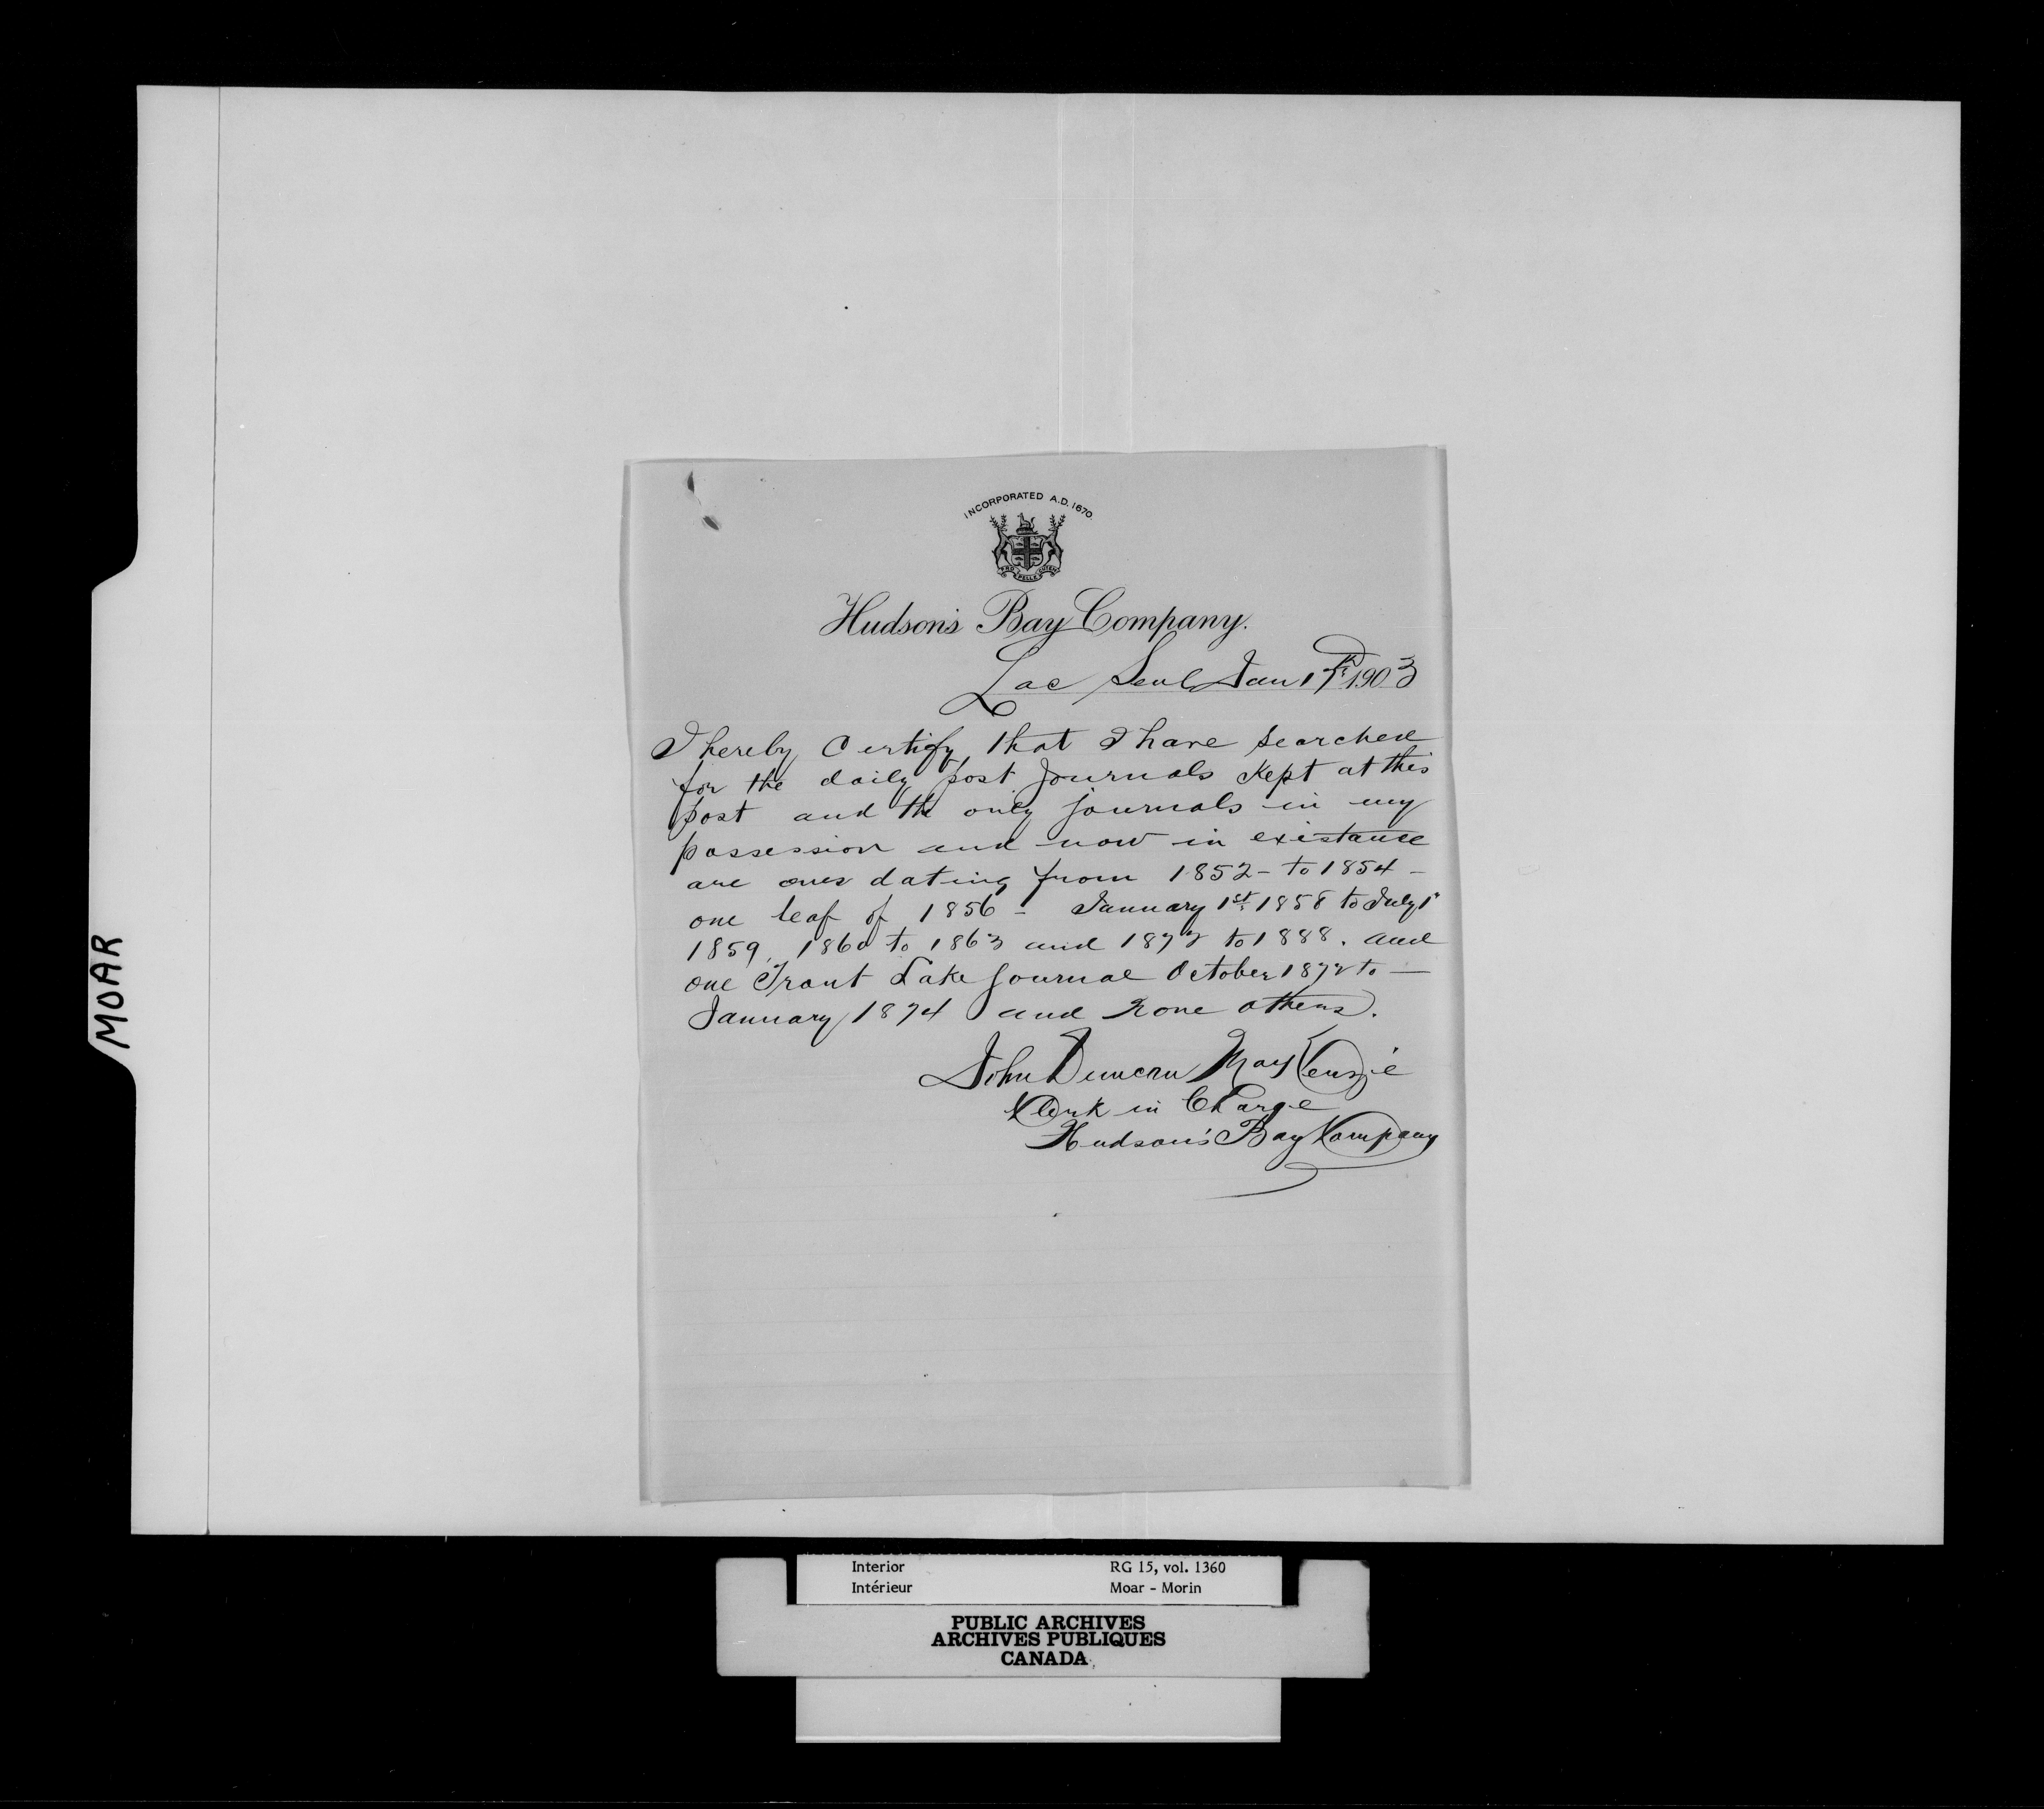 INCORPORATED A.D. 1670.
PRO PELLE CUTEM
Hudson's Bay Company.
Lac Seul Jan 17th 1903
I hereby Certify that I have searched
for the daily post Journals Kept at this
post and the only journals in my
possession and now in existance
are ones dating from 1852 - to 1854 -
one leaf of 1856 - January 1st 1858 to July 1st
1859, 1860 to 1863 and 1872 to 1888. and
one Trout Lake Journal October 1872 to -
January 1874 and none others.
John Duncan MacKenzie
Clerk in Charge
Hudson's Bay Company
MOAR
Interior RG 15, vol. 1360
Intérieur Moar - Morin
PUBLIC ARCHIVES
ARCHIVES PUBLIQUES
CANADA